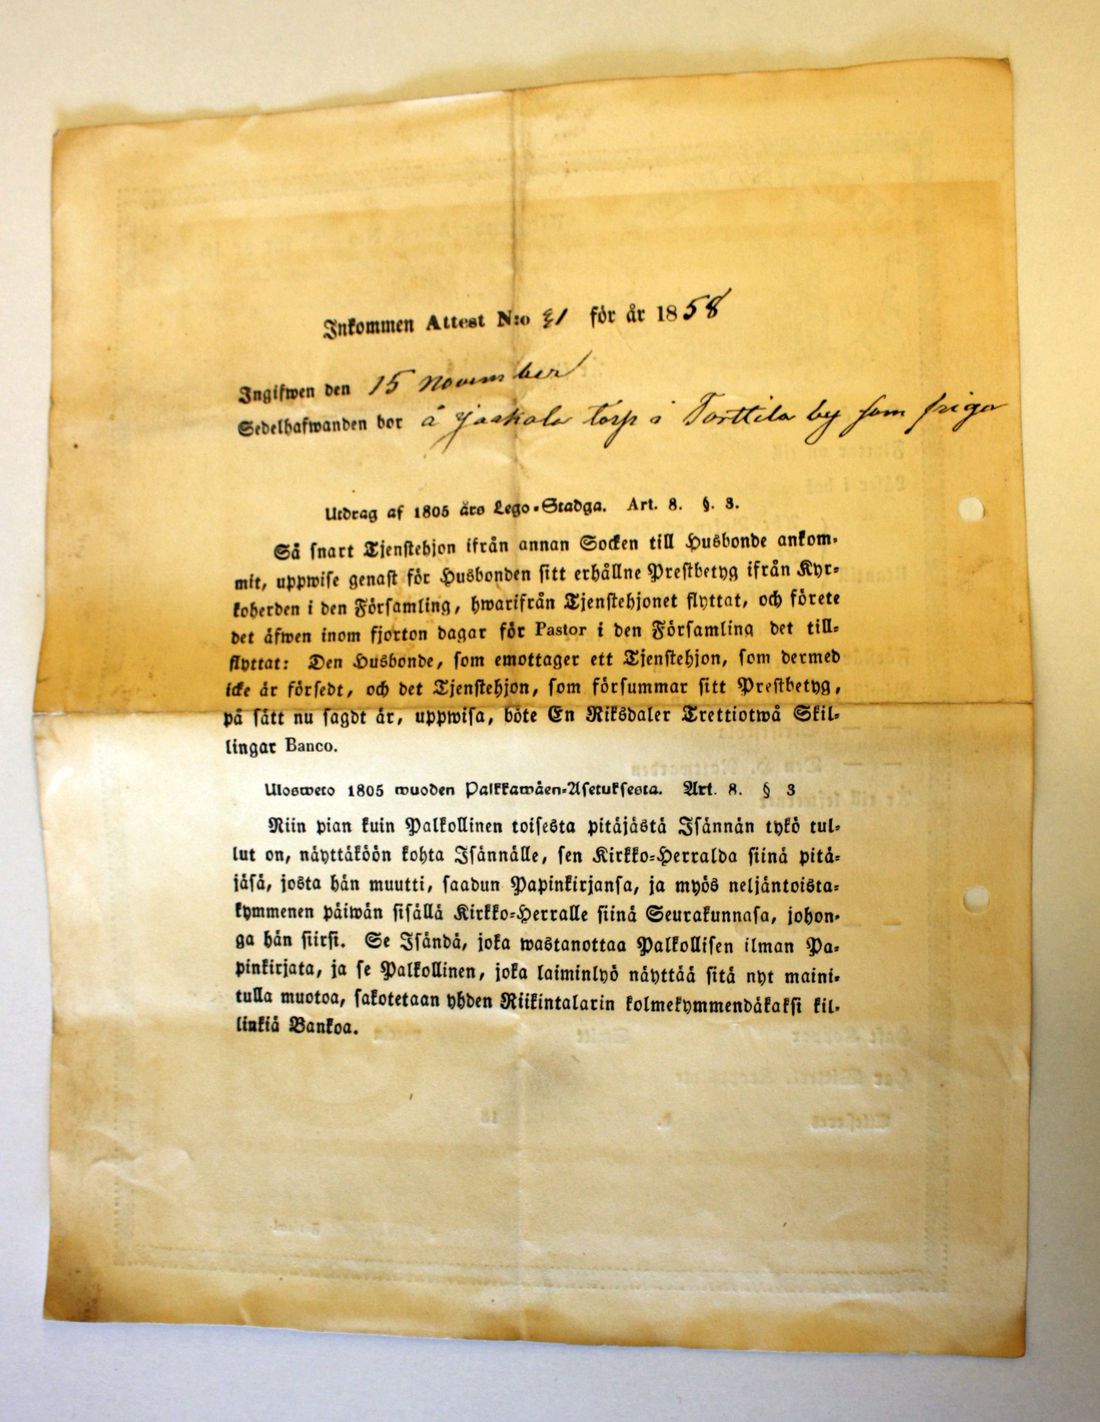 Inkommen Attest N:o 21 för år 1858
Ingifwen den 15 November
Sedelhafwanden bor å Jaakola torp i Torttila by som piga
Utdrag af 1805 års Lego-Stadga. Art. 8. §. 3.
Så snart Tjenstehjon ifrån annan Socken till Husbonde ankom-
mit, uppwise genast för Husbonden sitt erhållne Prestbetyg ifrån Kyr-
koherden i den Församling, hwarifrån Tjenstehjonet flyttat, och förete
det äfwen inom fjorton dagar för Pastor i den Församling det till-
flyttat: Den Husbonde, som emottager ett Tjenstehjon, som dermed
icke är försedt, och det Tjenstehjon, som försummar sitt Prestbetyg,
på sätt nu sagdt är, uppwisa, böte En Riksdaler Trettiotwå Skil-
lingar Banco.
Ulosweto 1805 wuoden Palkkawäen-Asetuksesta. Art. 8. § 3
Niin pian kuin Palkollinen toisesta pitäjästä Isännän tykö tul-
lut on, näyttäköön kohta Isännälle, sen Kirkko-Herralda siinä pitä-
jäsä, josta hän muutti, saadun Papinkirjansa, ja myös neljäntoista-
kymmenen päiwän sisällä Kirkko-Herralle siinä Seurakunnasa, johon-
ga hän siirsi. Se Isändä, joka wastanottaa Palkollisen ilman Pa-
pinkirjata, ja se Palkollinen, joka laiminlyö näyttää sitä nyt maini-
tulla muotoa, sakotetaan yhden Riikintalarin kolmekymmendäkaksi kil-
linkiä Bankoa.